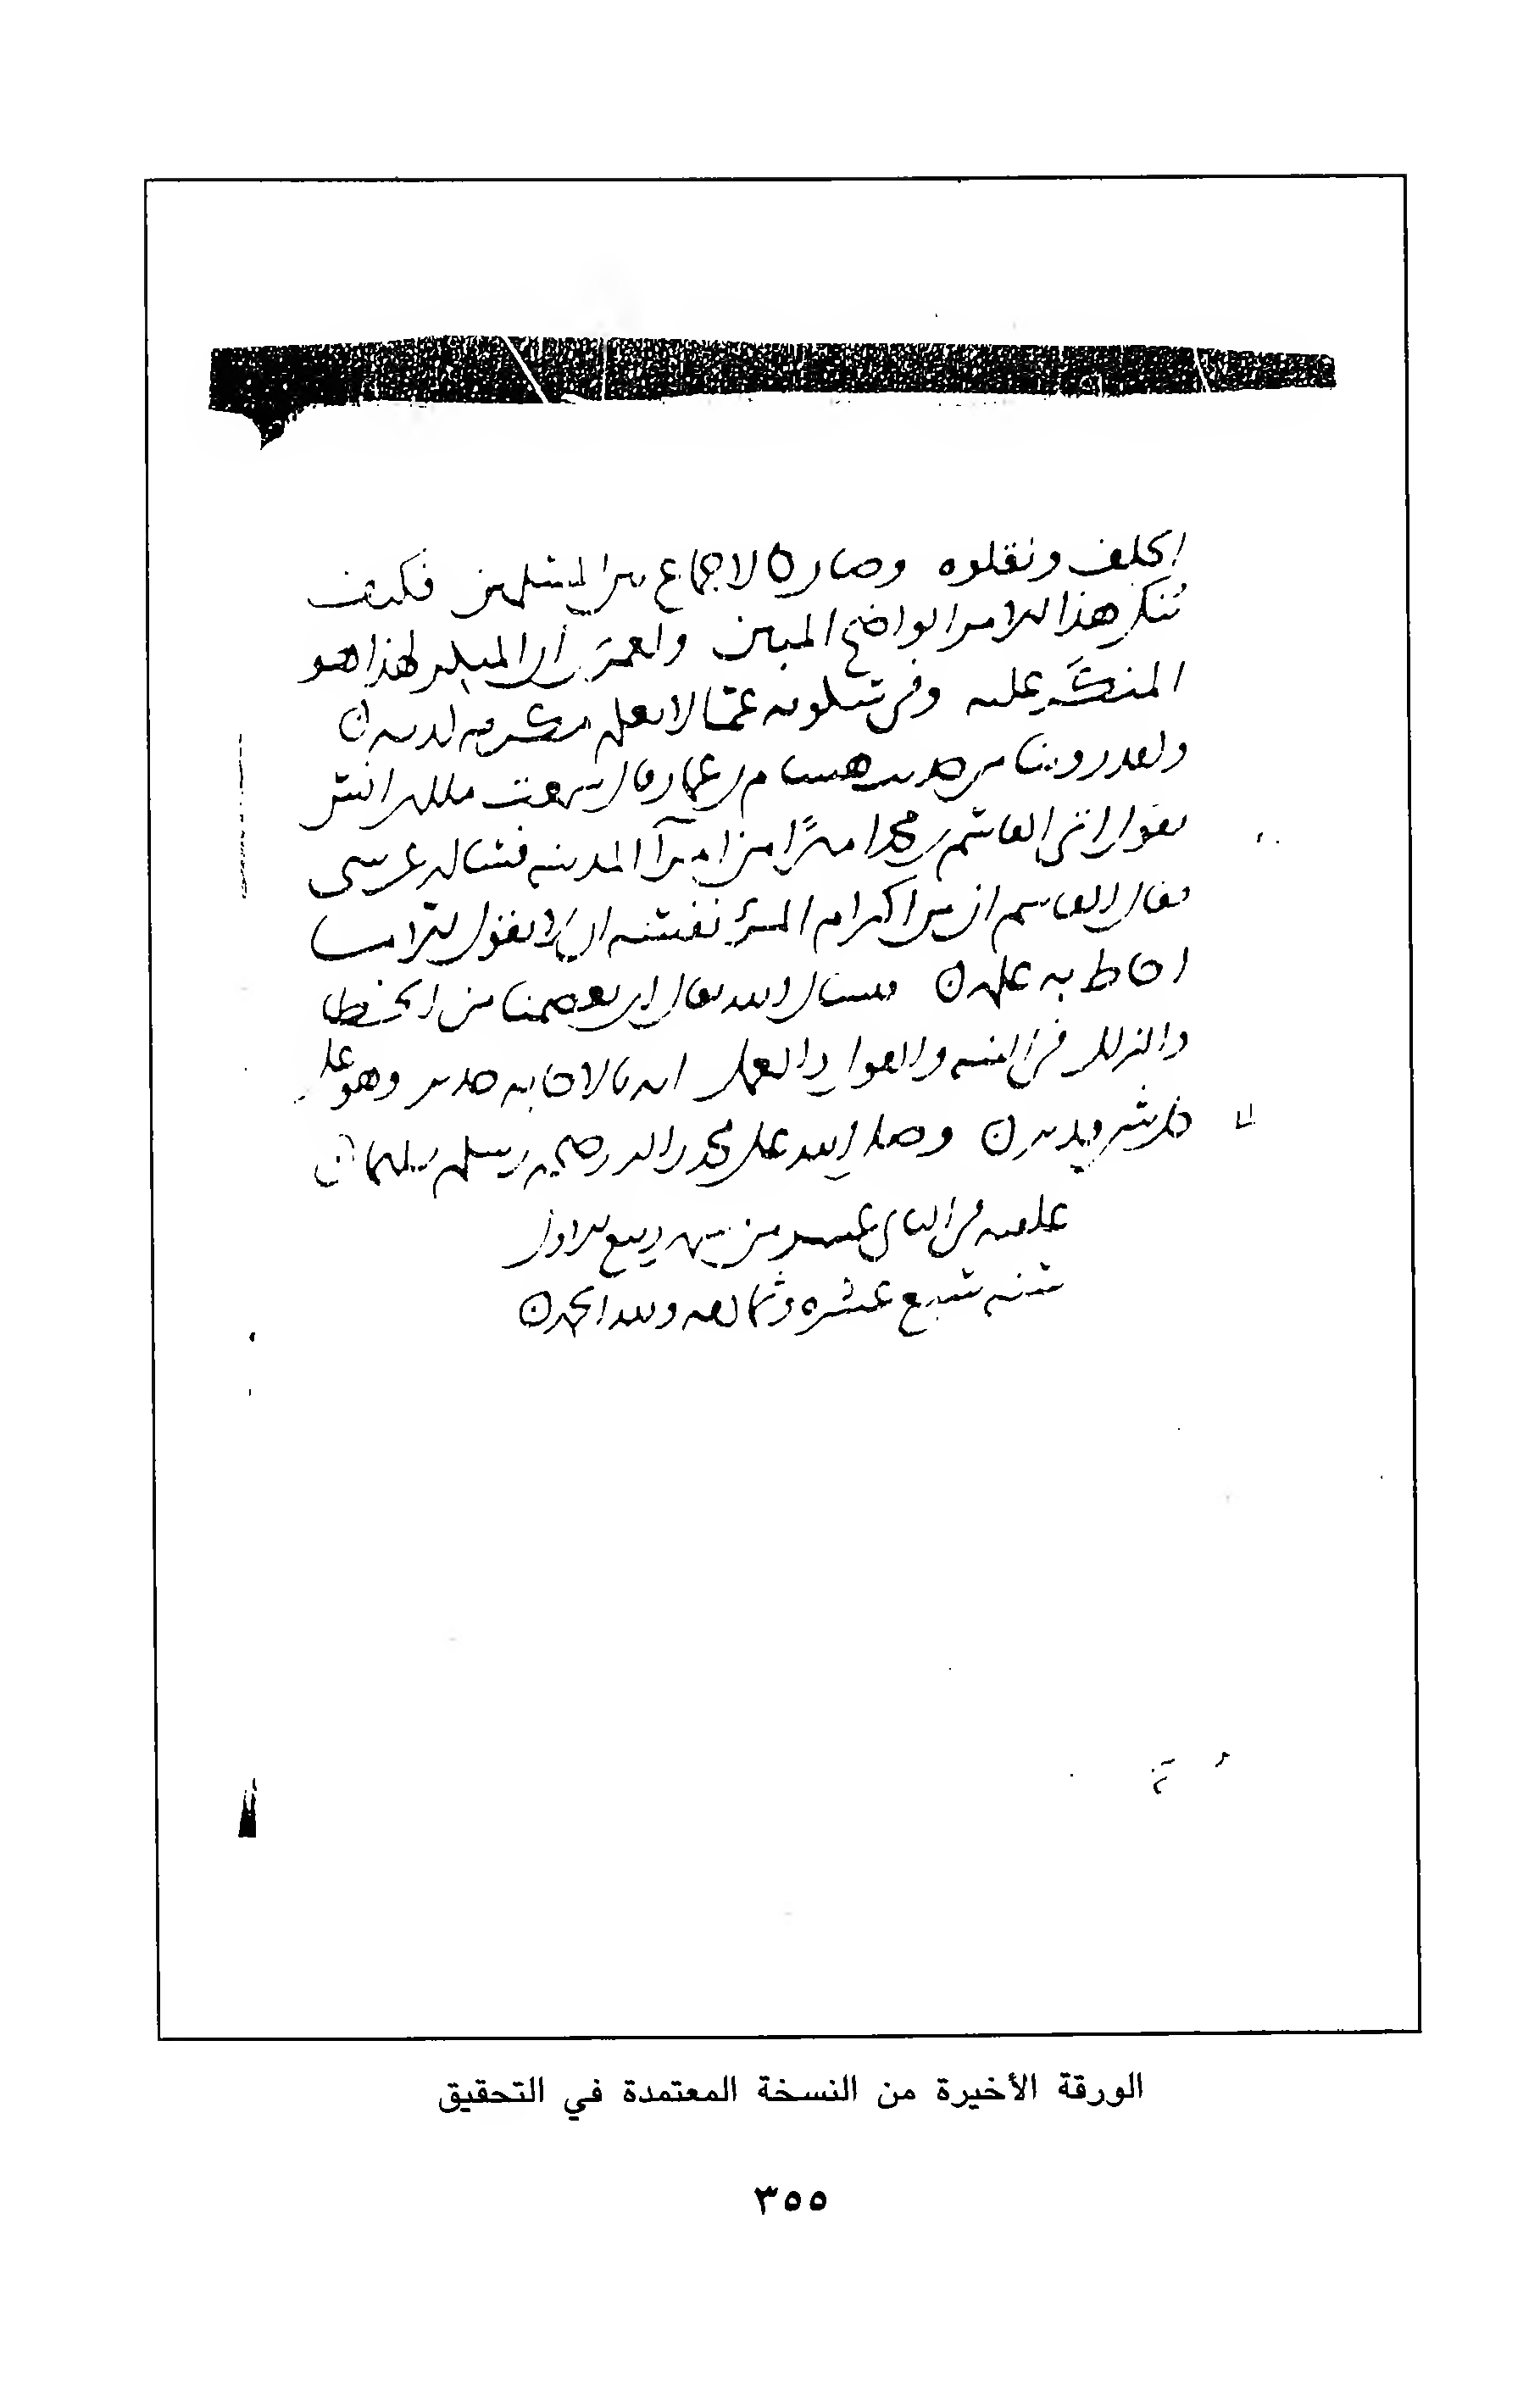 الخلف ونقلوه وصار كالاجماع من المسلمين فكيف
تنكر هذا الامر الواضح المبين ولعمري ان المنكر لهذا هو
المنكر عليه وفي عما لا يعلم
ولقد روينا من حديث هشام بن عمار قال سمعت ملك بن انس
يقول اتى القاسم بن محمد امير من امرآ المدينة فسئاله عن شي
فقال القاسم ان من اكرام المرء نفسه ان لا يقول الا ما
احاط به علمه فنسئال الله تعالى ان يعصمنا من الخطا
والزلل في النية والقول والعمل انه بالاجابه جدير وهو على
كل شي قدير وصلى الله على محمد واله وصحبه وسلم
علقه في الثاني عشر من شهر ربيع الاول
سنه سبع عشره وثمانمئه ولله الحمد
الورقة الأخيرة من النسخة المعتمدة في التحقيق
٣٥٥